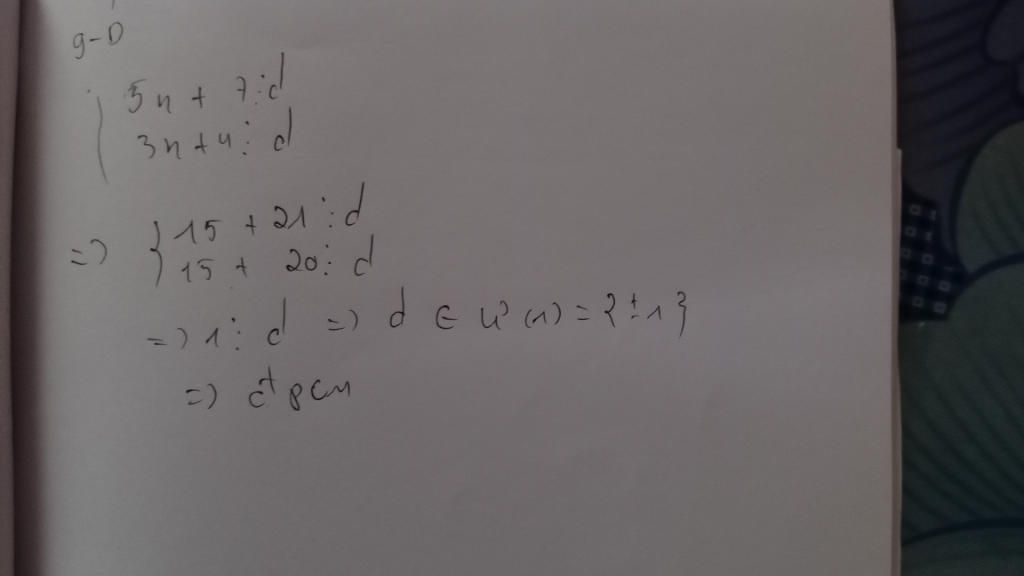 g-D
5n + 7⋮d
3n+4⋮ d
=> 15 + 21⋮d
15 + 20⋮ d
=> 1⋮ d => d ∈ Ư (1) = {±1}
=> đpcm